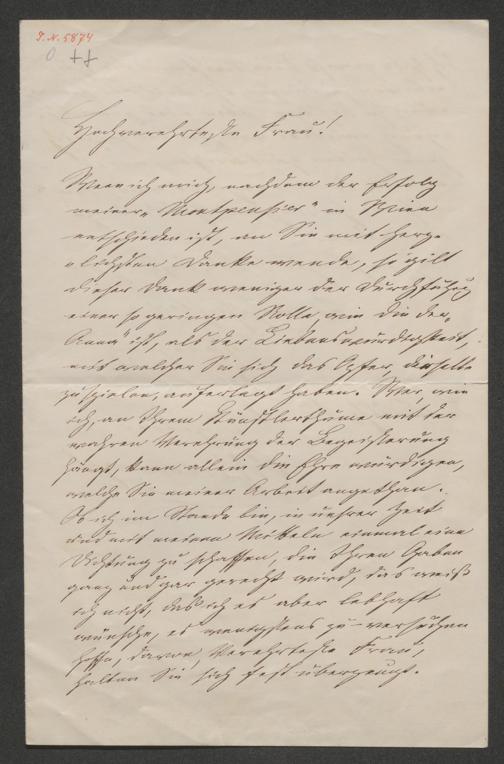 I. N. 5874
Hochverehrteste Frau!
Wenn ich mich, nachdem der Erfolg
meiner „Montpensier" in Wien
entschieden ist, an Sie mit herz-
lichstem Danke wende, so gilt
dieser Dank weniger der Durchführung
einer so geringen Rolle, wie die der
Anna ist, als der Liebenswürdigkeit,
mit welcher Sie sich das Opfer, dieselbe
zu spielen, auferlegt haben. Wer, wie
ich, an Ihrem Künstlerthume mit der
wahren Verehrung der Begeisterung
hängt, kann allein die Ehre würdigen,
welche Sie meiner Arbeit angethan.
Ob ich im Stande bin, in unsrer Zeit
und mit meinen Mitteln einmal eine
Dichtung zu schaffen, die Ihren Gaben
ganz und gar gerecht wird, das weiß
ich nicht, daß ich es aber lebhaft
wünsche, es wenigstens zu versuchen
hoffe, davon, Verehrteste Frau,
halten Sie sich fest überzeugt.